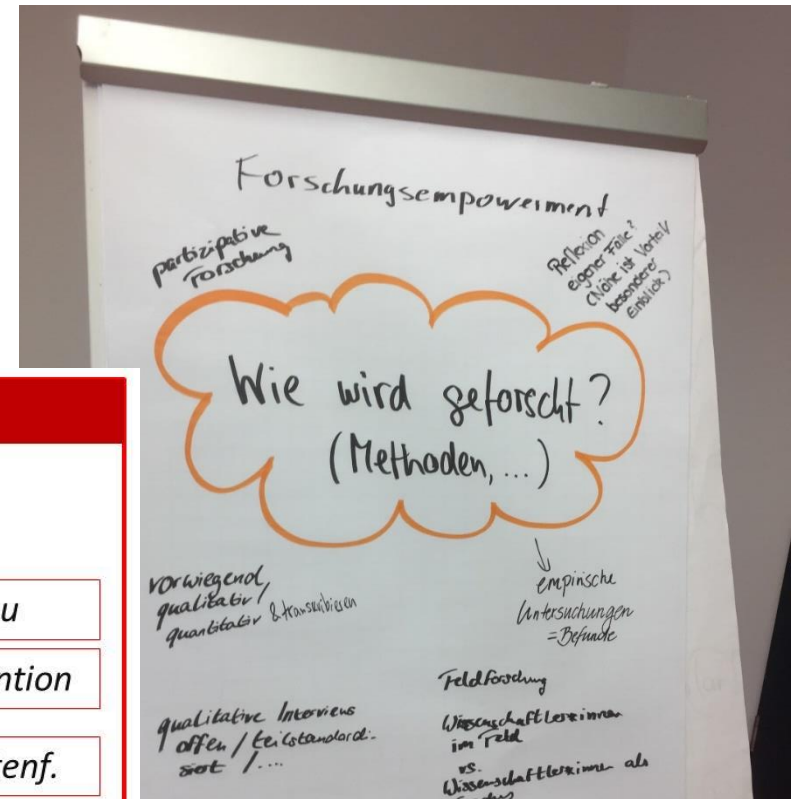 Forschungsempowerment
partizipative
Forschung
Reflexion
eigener Fälle?
(Nähe ist Vorteil/
besonderer
Einblick)
Wie wird geforscht?
(Methoden, ...)
vorwiegend
qualitativ /
quantitativ & transkribieren
empirische
Untersuchungen
= Befunde
qualitative Interviews
offen / teilstandardi-
siert / ....
Feldforschung
Wissenschaftlerinnen
im Feld
vs.
Wissenschaftlerinnen als
u
ntion
enf.